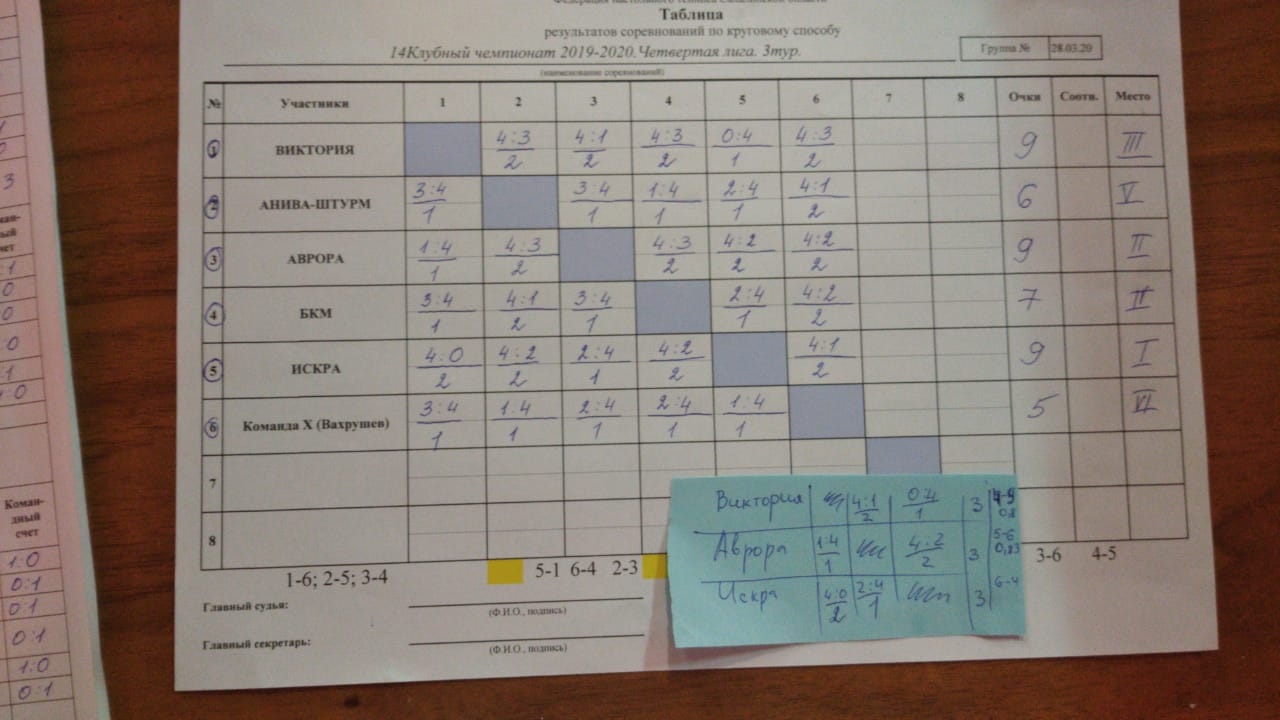 Федерация настольного тенниса Сахалинской области
Таблица
результатов соревнований по круговому способу
14Клубный чемпионат 2019-2020.Четвертая лига. 3тур.
(наименование соревнований)
Группа № 28.03.20
№ Участники 1 2 3 4 5 6 7 8 Очки Соотн. Место
1 ВИКТОРИЯ 4:3 4:1 4:3 0:4 4:3 9 III
2 2 2 1 2
2 АНИВА-ШТУРМ 3:4 3:4 1:4 2:4 4:1 6 V
1 1 1 1 2
3 АВРОРА 1:4 4:3 4:3 4:2 4:2 9 II
1 2 2 2 2
4 БКМ 3:4 4:1 3:4 2:4 4:2 7
1 2 1 1 2
5 ИСКРА 4:0 4:2 2:4 4:2 4:1 9 I
2 2 1 2 2
6 Команда Х (Вахрушев) 3:4 1:4 2:4 2:4 1:4 5 VI
1 1 1 1 1
7
8
1-6; 2-5; 3-4 5-1 6-4 2-3 3-6 4-5
Главный судья:
(Ф.И.О., подпись)
Главный секретарь:
(Ф.И.О., подпись)
Виктория 4:1 0:4 3
2 1 0,8
Аврора 1:4 4:2 3 5-6
1 2 0,83
Искра 4:0 2:4 3 6-4
2 1
Коман-
дный
счет
1:0
0:1
0:1
0:1
1:0
0:1